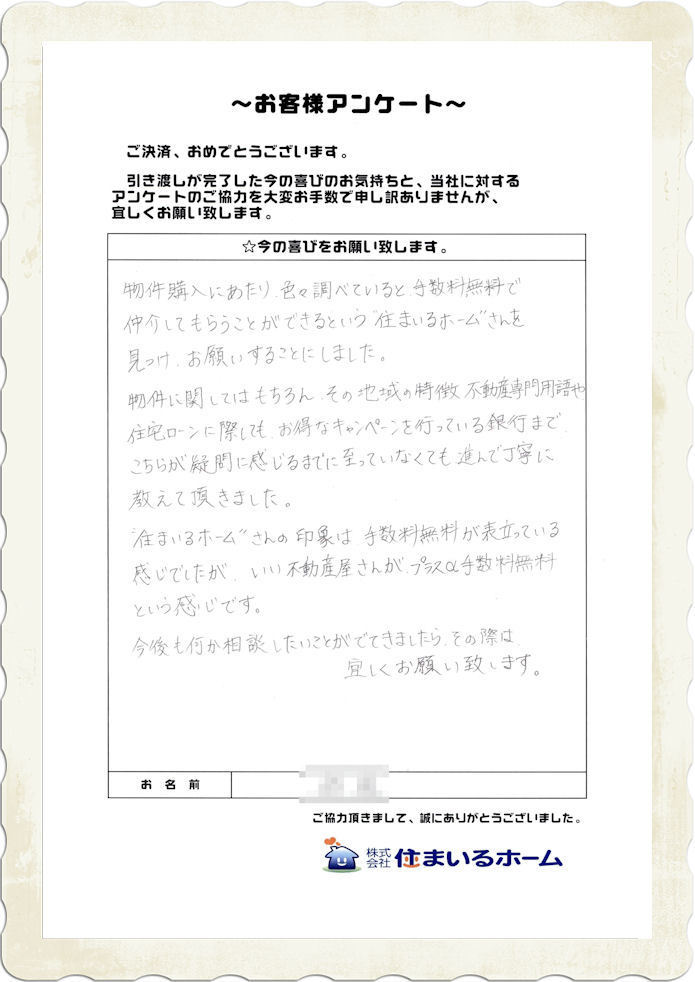 ～お客様アンケート～
ご決済、おめでとうございます。
引き渡しが完了した今の喜びのお気持ちと、当社に対する
アンケートのご協力を大変お手数で申し訳ありませんが、
宜しくお願い致します。
☆今の喜びをお願い致します。
物件購入にあたり、色々調べていると、手数料無料で
仲介してもらうことができるという"住まいるホーム"さんを
見つけ、お願いすることにしました。
物件に関してはもちろん、その地域の特徴、不動産専門用語や
住宅ローンに際しても、お得なキャンペーンを行っている銀行まで、
こちらが疑問に感じるまでに至っていなくても進んで丁寧に
教えて頂きました。
"住まいるホーム"さんの印象は、手数料無料が表立っている
感じでしたが、いい不動産屋さんが、プラスα手数料無料
という感じです。
今後も何か相談したいことがでてきましたら、その際は、
宜しくお願い致します。
お名前
ご協力頂きまして、誠にありがとうございました。
株式会社 住まいるホーム